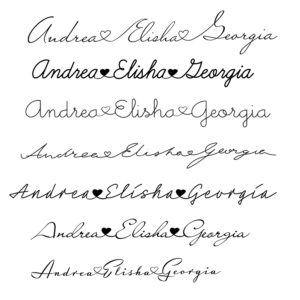 Andrea♡Elisha♡Georgia
Andrea♥Elisha♥Georgia
Andrea♡Elisha♡Georgia
Andrea♡Elisha♡Georgia
Andrea♥Elísha♥Georgía
Andrea♥Elisha♥Georgia
Andrea♡Elisha♡Georgia